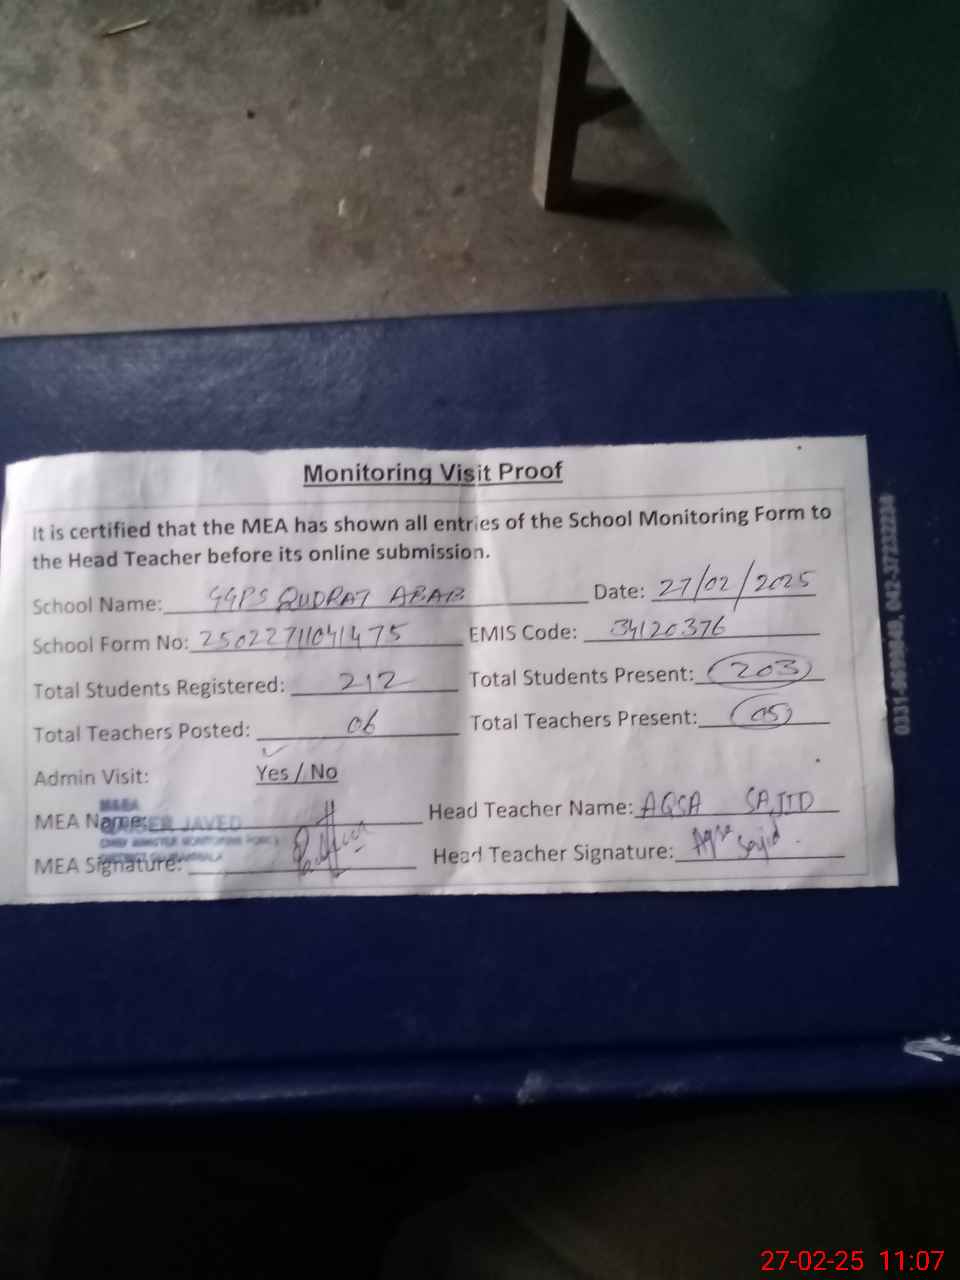 Monitoring Visit Proof
It is certified that the MEA has shown all entries of the School Monitoring Form to
the Head Teacher before its online submission.
School Name: GGPS QUDRAT ABAB Date: 27/02/2025
School Form No: 25022711041475 EMIS Code: 34120376
Total Students Registered: 212 Total Students Present: 203
Total Teachers Posted: 06 Total Teachers Present: 05
Admin Visit: Yes / No
M&EA
MEA Name: JAVED Head Teacher Name: AQSA SAJID
MEA Signature: Head Teacher Signature: Aqsa Sajid
042-37232234
27-02-25 11:07